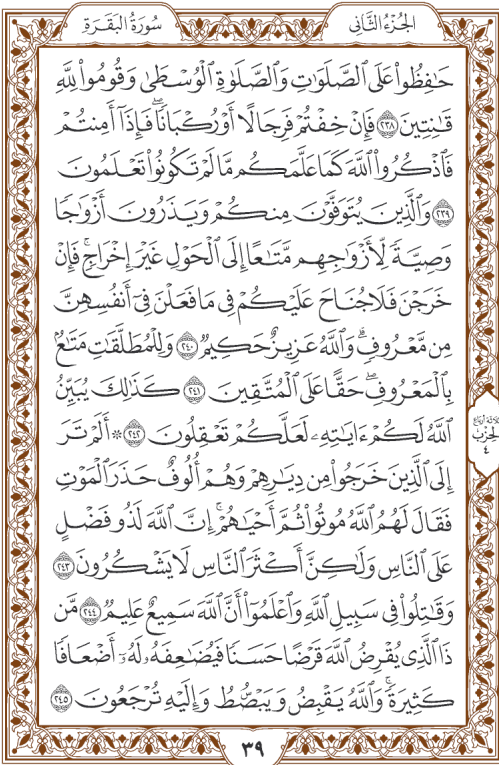 الجزء الثاني
سورة البقرة
حَٰفِظُوا۟ عَلَى ٱلصَّلَوَٰتِ وَٱلصَّلَوٰةِ ٱلْوُسْطَىٰ وَقُومُوا۟ لِلَّهِ
قَٰنِتِينَ ٢٣٨ فَإِنْ خِفْتُمْ فَرِجَالًا أَوْ رُكْبَانًا ۖ فَإِذَآ أَمِنتُمْ
فَٱذْكُرُوا۟ ٱللَّهَ كَمَا عَلَّمَكُم مَّا لَمْ تَكُونُوا۟ تَعْلَمُونَ
٢٣٩ وَٱلَّذِينَ يُتَوَفَّوْنَ مِنكُمْ وَيَذَرُونَ أَزْوَٰجًا
وَصِيَّةً لِّأَزْوَٰجِهِم مَّتَٰعًا إِلَى ٱلْحَوْلِ غَيْرَ إِخْرَاجٍ ۚ فَإِنْ
خَرَجْنَ فَلَا جُنَاحَ عَلَيْكُمْ فِى مَا فَعَلْنَ فِىٓ أَنفُسِهِنَّ
مِن مَّعْرُوفٍ ۗ وَٱللَّهُ عَزِيزٌ حَكِيمٌ ٢٤٠ وَلِلْمُطَلَّقَٰتِ مَتَٰعٌۢ
بِٱلْمَعْرُوفِ ۖ حَقًّا عَلَى ٱلْمُتَّقِينَ ٢٤١ كَذَٰلِكَ يُبَيِّنُ
ٱللَّهُ لَكُمْ ءَايَٰتِهِۦ لَعَلَّكُمْ تَعْقِلُونَ ٢٤٢ ۞ أَلَمْ تَرَ
إِلَى ٱلَّذِينَ خَرَجُوا۟ مِن دِيَٰرِهِمْ وَهُمْ أُلُوفٌ حَذَرَ ٱلْمَوْتِ
فَقَالَ لَهُمُ ٱللَّهُ مُوتُوا۟ ثُمَّ أَحْيَٰهُمْ ۚ إِنَّ ٱللَّهَ لَذُو فَضْلٍ
عَلَى ٱلنَّاسِ وَلَٰكِنَّ أَكْثَرَ ٱلنَّاسِ لَا يَشْكُرُونَ ٢٤٣
وَقَٰتِلُوا۟ فِى سَبِيلِ ٱللَّهِ وَٱعْلَمُوٓا۟ أَنَّ ٱللَّهَ سَمِيعٌ عَلِيمٌ ٢٤٤ مَّن
ذَا ٱلَّذِى يُقْرِضُ ٱللَّهَ قَرْضًا حَسَنًا فَيُضَٰعِفَهُۥ لَهُۥٓ أَضْعَافًا
كَثِيرَةً ۚ وَٱللَّهُ يَقْبِضُ وَيَبْصُۜطُ وَإِلَيْهِ تُرْجَعُونَ ٢٤٥
ثلاثة أرباع
الحزب
٤
٣٩